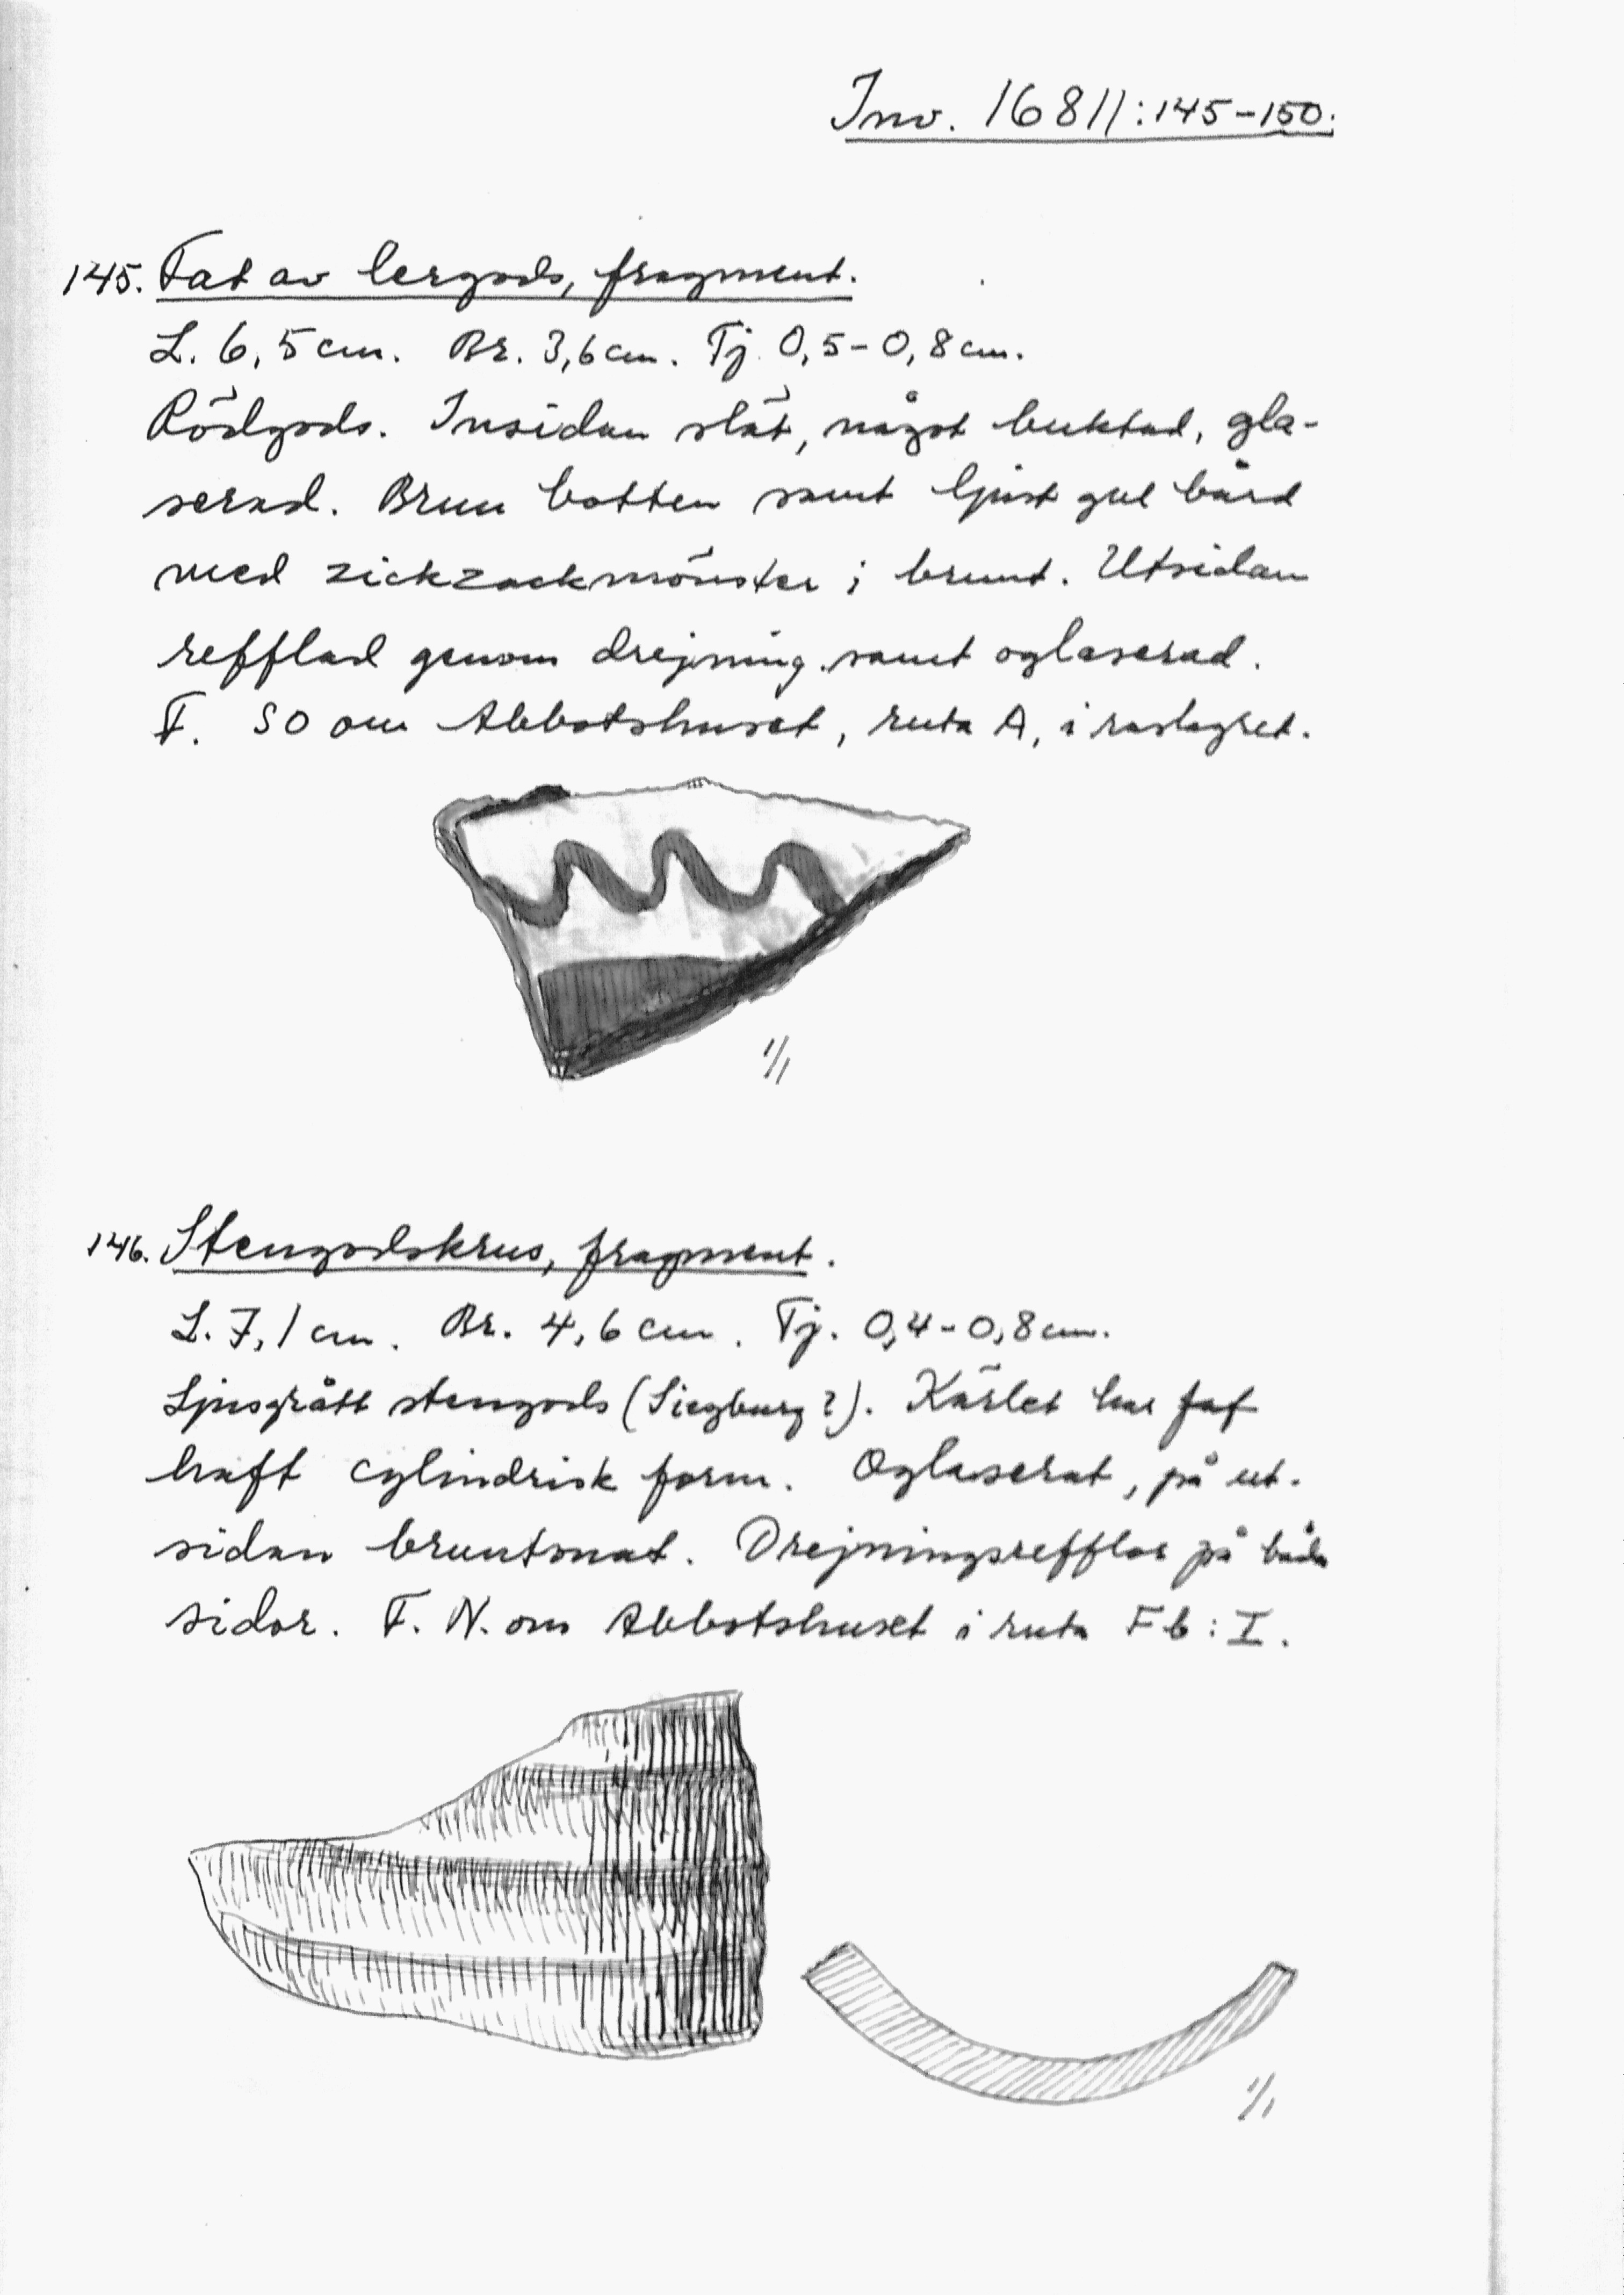 Inv. 16811:145-150.
145. Fat av lergods, fragment.
L. 6,5 cm. Br. 3,6 cm. Tj. 0,5-0,8 cm.
Rödgods. Insidan slät, något buktad, gla-
serad. Brun botten samt ljust gul bård
med zickzackmönster i brunt. Utsidan
refflad genom drejning samt oglaserad.
F. SO om Abbotshuset, ruta A, i raslagret.
1/1
146. Stengodskrus, fragment.
L. 7,1 cm. Br. 4,6 cm. Tj. 0,4-0,8 cm.
Ljusgrått stengods (Siegburg?). Kärlet har
haft cylindrisk form. Oglaserat, på ut-
sidan bruntonat. Drejningsrefflor på båda
sidor. F. N. om Abbotshuset i ruta Fb:I.
1/1